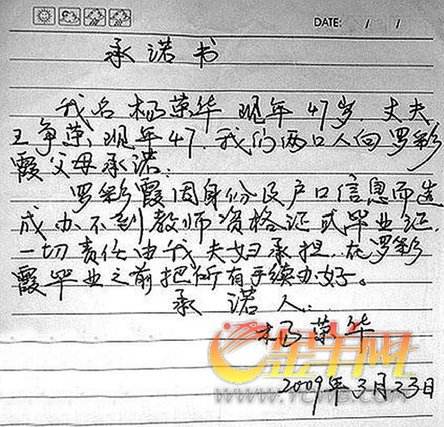 DATE: / /
承诺书
我名杨荣华现年47岁.丈夫
王争荣,现年47.我们两口人向罗彩
霞父母承诺:
罗彩霞因身份及户口信息而造
成办不到教师资格证或毕业证,
一切责任由我夫妇承担.在罗彩
霞毕业之前把所有手续办好。
承诺人:
杨荣华
2009年3月23日
金羊网
WWW.YCWB.COM